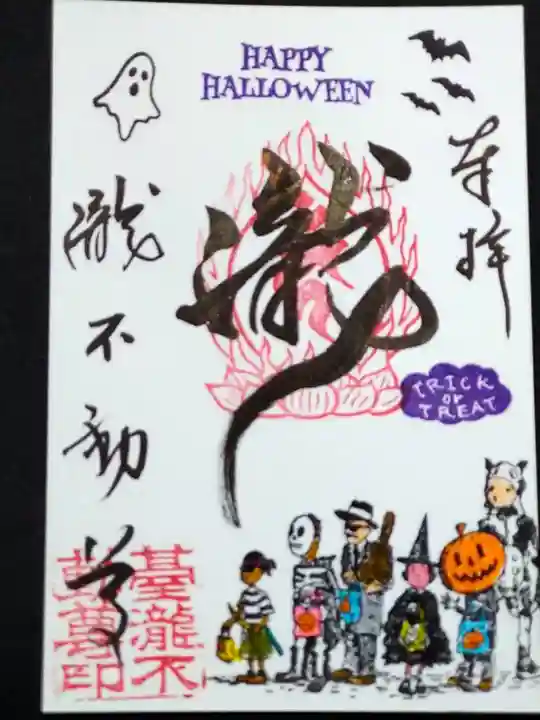 HAPPY
HALLOWEEN
奉拝
瀧
TRICK
or
TREAT
瀧不動尊